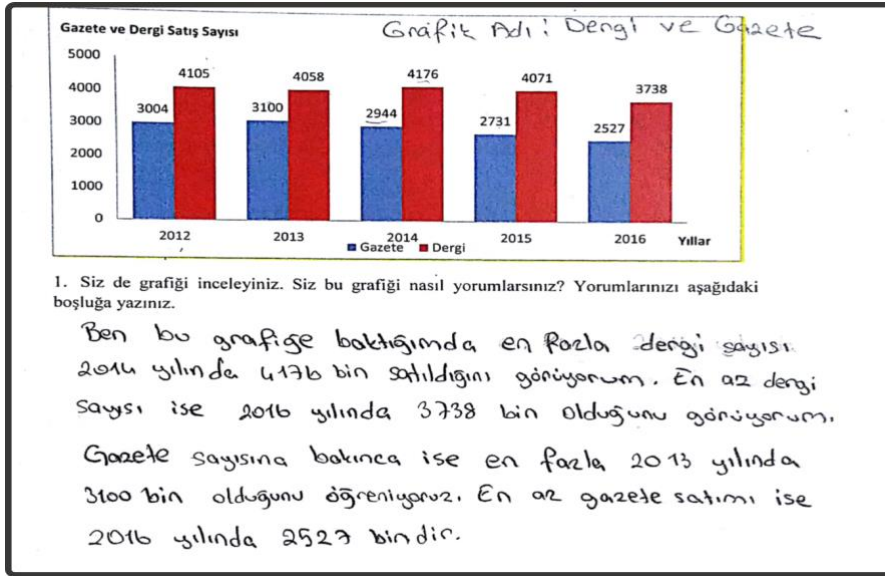 Gazete ve Dergi Satış Sayısı
Grafik Adı: Dergi ve Gazete
5000
4000
3000
2000
1000
0
3004 4105
3100 4058
2944 4176
2731 4071
2527 3738
2012 2013 2014 2015 2016 Yıllar
Gazete Dergi
1. Siz de grafiği inceleyiniz. Siz bu grafiği nasıl yorumlarsınız? Yorumlarınızı aşağıdaki
boşluğa yazınız.
Ben bu grafiğe baktığımda en fazla dergi sayısı
2014 yılında 4176 bin satıldığını görüyorum. En az dergi
sayısı ise 2016 yılında 3738 bin olduğunu görüyorum.
Gazete sayısına bakınca ise en fazla 2013 yılında
3100 bin olduğunu öğreniyoruz. En az gazete satımı ise
2016 yılında 2527 bindir.